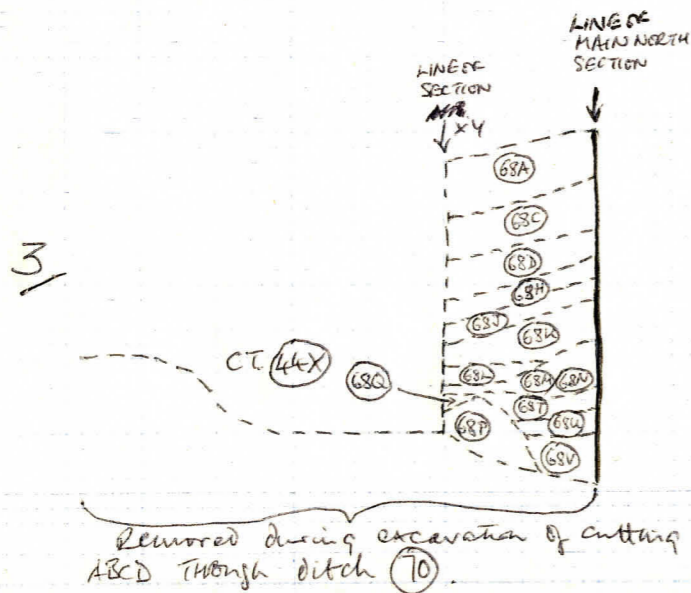 LINE OF
MAIN NORTH
SECTION
LINE OF
SECTION
XY
68A
68C
3
68D
68H
68J
68K
CT. 44X
68Q
68L
68M
68N
68T
68P
68U
68V
Removed during excavation of cutting
ABCD Through ditch 70.